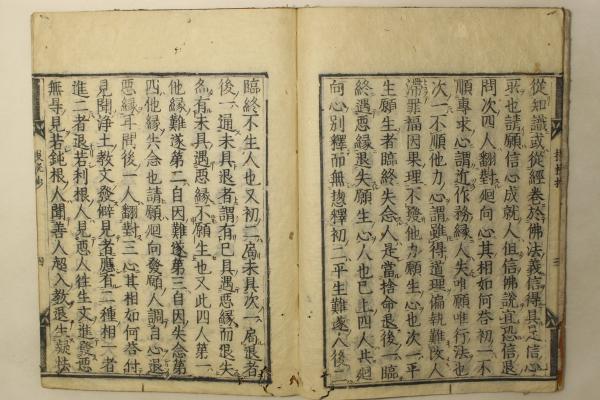 從知識或從經卷於佛法義信得具足信心
所也請願信心成就人但信佛說宜恐信退
問次四人翻對廻向心其相如何答初一不
順專求心謂近作務緣人失唯願唯行法也
次一不順他力心謂雖得道理偏執難改人
滯罪福因果理不發他力願生心也次一平
生願生者臨終失念人是當捨命退後一臨
終遇惡緣退失願生心人也已上四人共廻
向心別釋而無揔釋初二平生難遂人後二
臨終不生人也又初二局未具次一局退者
後一通未具退者謂有已具遇惡緣而退失
有未具遇惡緣不願生也又此四人第一
他緣難遂第二自因難遂第三自因失念第
四他緣失念也請願廻向發願人調自心退
惡緣耳問後一人翻對三心其相如何答付
見聞淨土教文發僻見者應有二種相一者
進二者退若利根人見惡人往生文進發惡
無导見若鈍根人聞善人入教退生疑怯